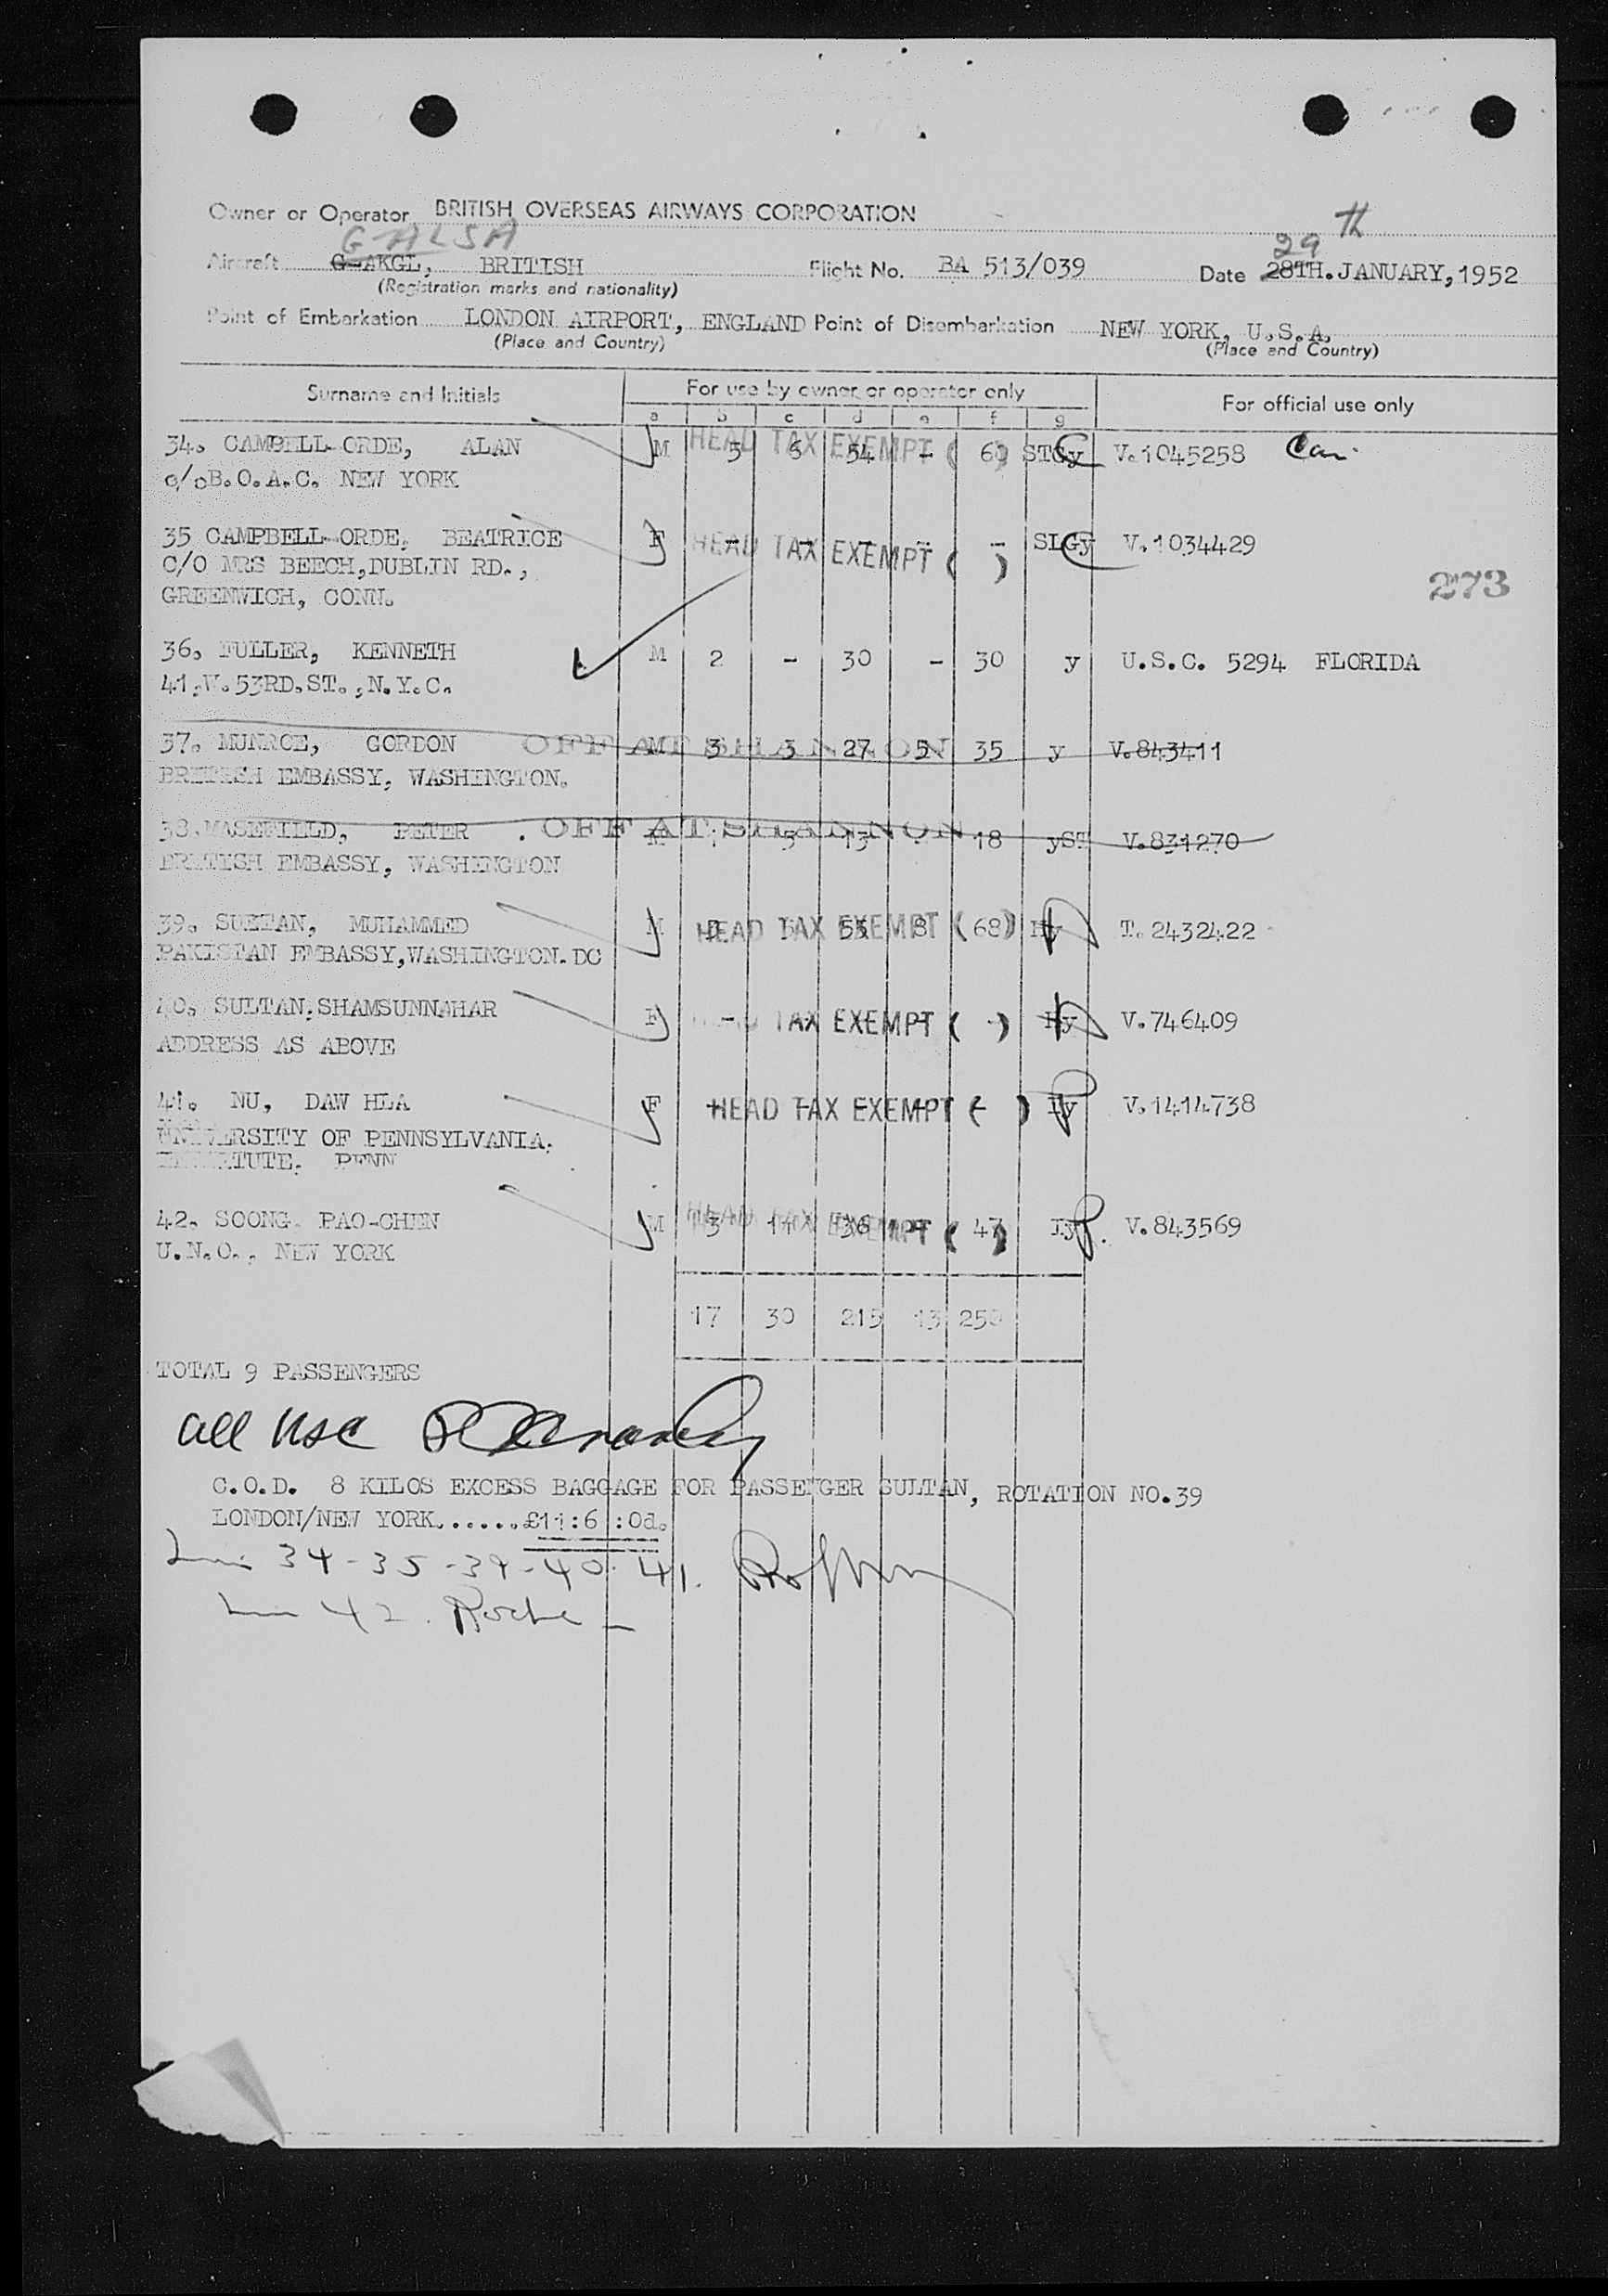 Owner or Operator BRITISH OVERSEAS AIRWAYS CORPORATION
G-ALSA 29 th
Aircraft G-AKGL, BRITISH Flight No. BA 513/039 Date 28TH.JANUARY,1952
(Registration marks and nationality)
Point of Embarkation LONDON AIRPORT, ENGLAND Point of Disembarkation NEW YORK, U.S.A.
(Place and Country) (Place and Country)
Surname and Initials For use by owner or operator only For official use only
a b c d e f g
34. CAMPBELL-ORDE, ALAN M HEAD TAX EXEMPT ( ) 5 6 54 - 60 STGy V.1045258 Can.
c/o B.O.A.C. NEW YORK
35 CAMPBELL-ORDE, BEATRICE F HEAD TAX EXEMPT ( ) - - - - - SLGy V.1034429
C/O MRS BEECH,DUBLIN RD.,
GREENWICH, CONN.
273
36. FULLER, KENNETH M 2 - 30 - 30 y U.S.C. 5294 FLORIDA
41.W.53RD.ST.,N.Y.C.
37. MUNROE, GORDON OFF AT SHANNON M 3 3 27 5 35 y V.843411
BRITISH EMBASSY, WASHINGTON.
38.MASEFIELD, PETER . OFF AT SHANNON M 1 5 13 - 18 yST V.831270
BRITISH EMBASSY, WASHINGTON
39. SULTAN, MUHAMMED M HEAD TAX EXEMPT ( ) 55 8 68 y T.2432422
PAKISTAN EMBASSY,WASHINGTON.DC
40. SULTAN.SHAMSUNNAHAR F HEAD TAX EXEMPT ( ) - - - - - y V.746409
ADDRESS AS ABOVE
41. NU, DAW HLA F HEAD TAX EXEMPT ( ) - - - - - y V.1414738
UNIVERSITY OF PENNSYLVANIA.
PENN
42. SOONG, PAO-CHEN M HEAD TAX EXEMPT ( ) 3 11 36 - 47 V.843569
U.N.O., NEW YORK
17 30 215 13 250
TOTAL 9 PASSENGERS
all usc
C.O.D. 8 KILOS EXCESS BAGGAGE FOR PASSENGER SULTAN, ROTATION NO.39
LONDON/NEW YORK......£11:6 :0d.
34-35-39-40.41.
42. Roche